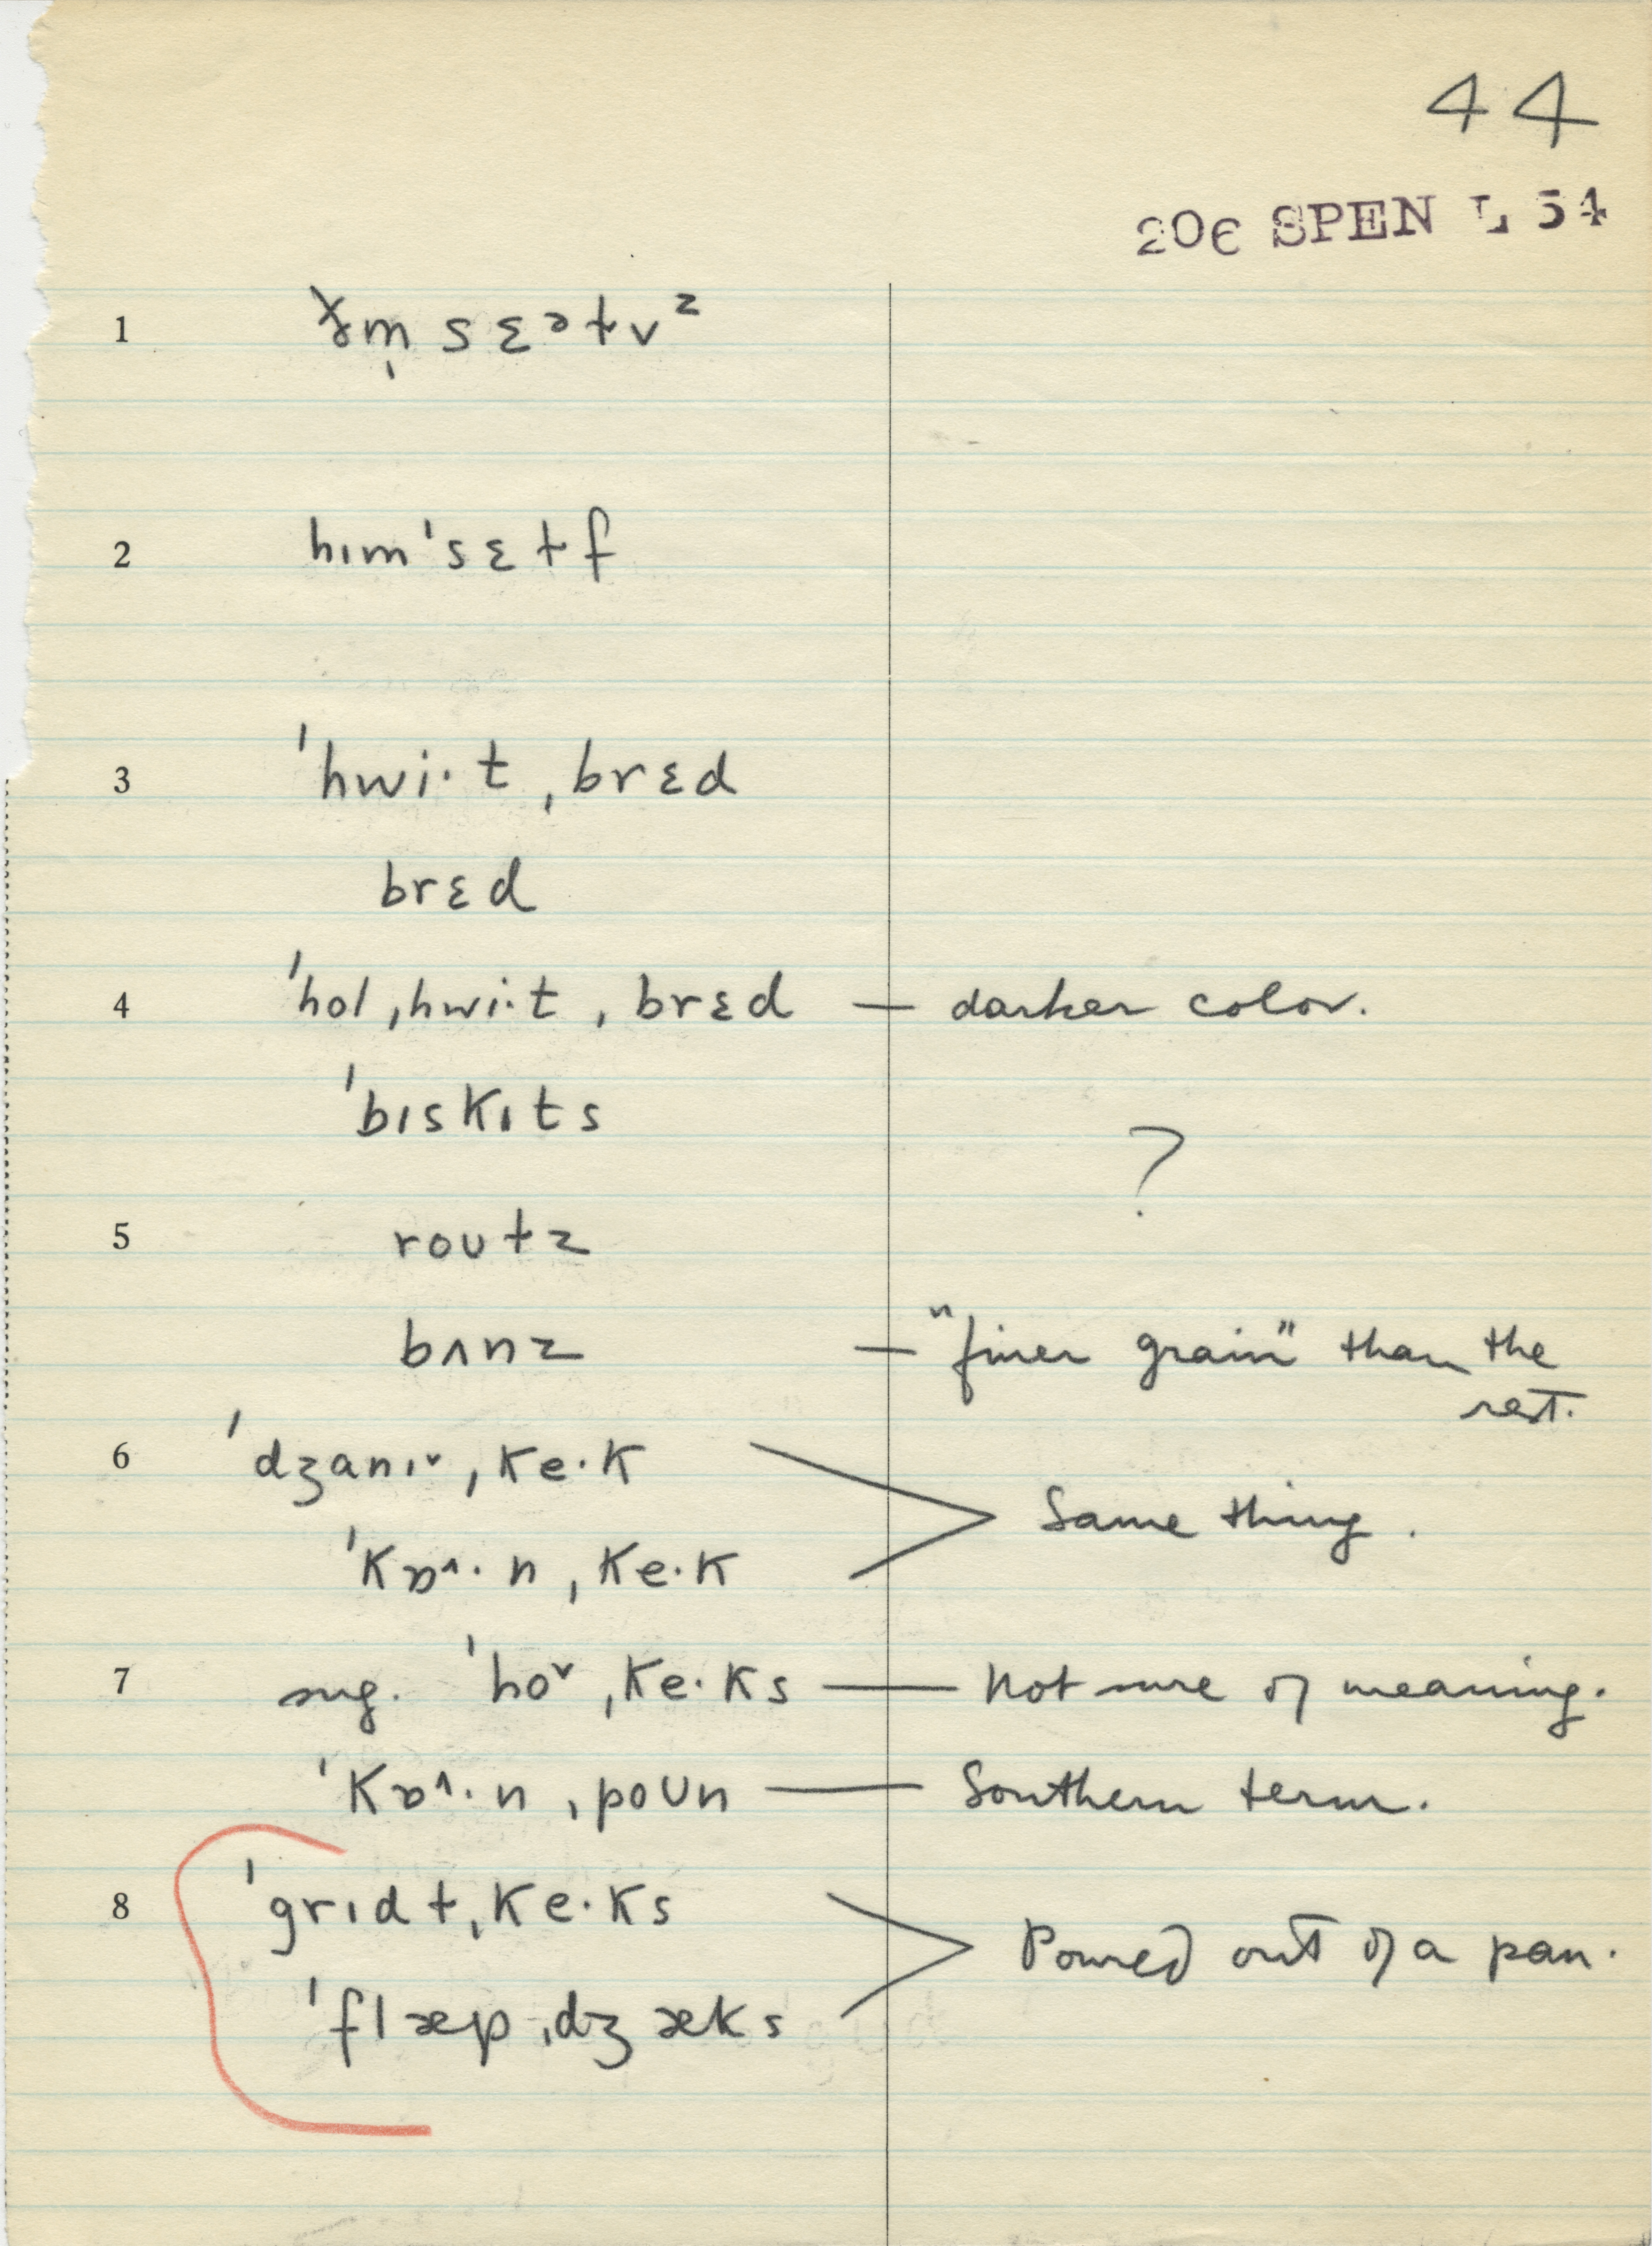 44
20e SPEN L 54
1 ðm̩ sɛəɫvᶻ
2 hɪmˈsɛɫf
3 ˈhwi·t ˌbrɛd
brɛd
4 ˈhol ˌhwi·t ˌbrɛd — darker color.
ˈbɪskɪts
?
5 roʊɫz
bʌnz — "finer grain" than the
rest.
6 ˈdʒanɪ˅ ˌke·k
Same thing.
ˈkɒ˄·n ˌke·k
7 sug. ˈho˅ ˌke·ks — Not sure of meaning.
ˈkɒ˄·n ˌpoʊn — Southern term.
8 ˈgrɪdɫ ˌke·ks
Poured out of a pan.
ˈflæp ˌdʒæks